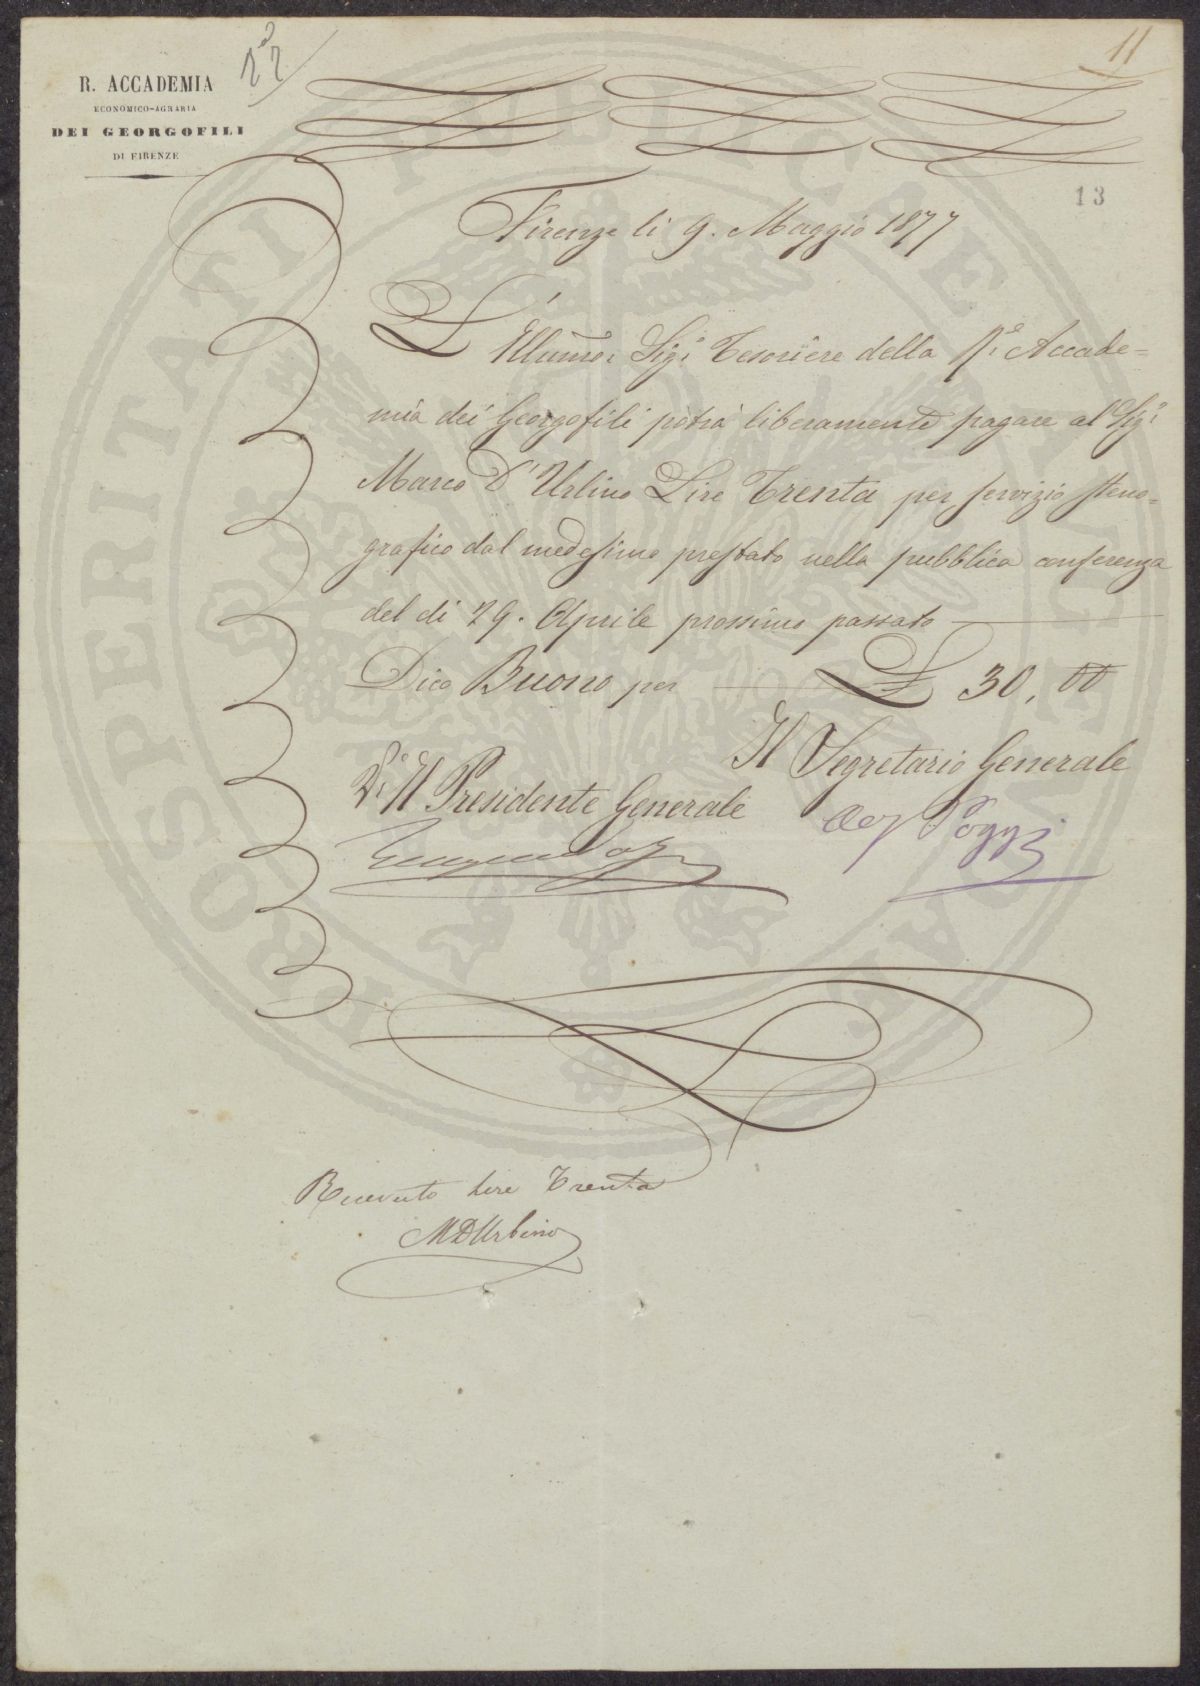 R. ACCADEMIA
ECONOMICO-AGRARIA
DEI GEORGOFILI
DI FIRENZE
11
13
Firenze li 9. Maggio 1877
L'Illumo: Sigr Tesoriere della Ra Accade=
mia dei Georgofili potrà liberamente pagare al Sigr
Marco D'Urbino Lire Trenta per servizio steno=
grafico dal medesimo prestato nella pubblica conferenza
del di 29. Aprile prossimo passato
Dico Buono per £ 30, 00
Il Segretario Generale
Vo Il Presidente Generale
Poggi
Ricevuto Lire Trenta
MDUrbino
PROSPERITATI PUBLICAE AUGENDAE